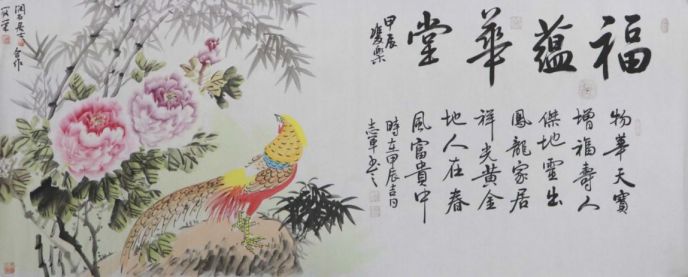 福蘊華堂
甲辰
物華天寶
增福壽人
傑地靈出
鳳龍家居
祥光黃金
地人在春
風富貴中
時在甲辰吉日
志軍書之
合作